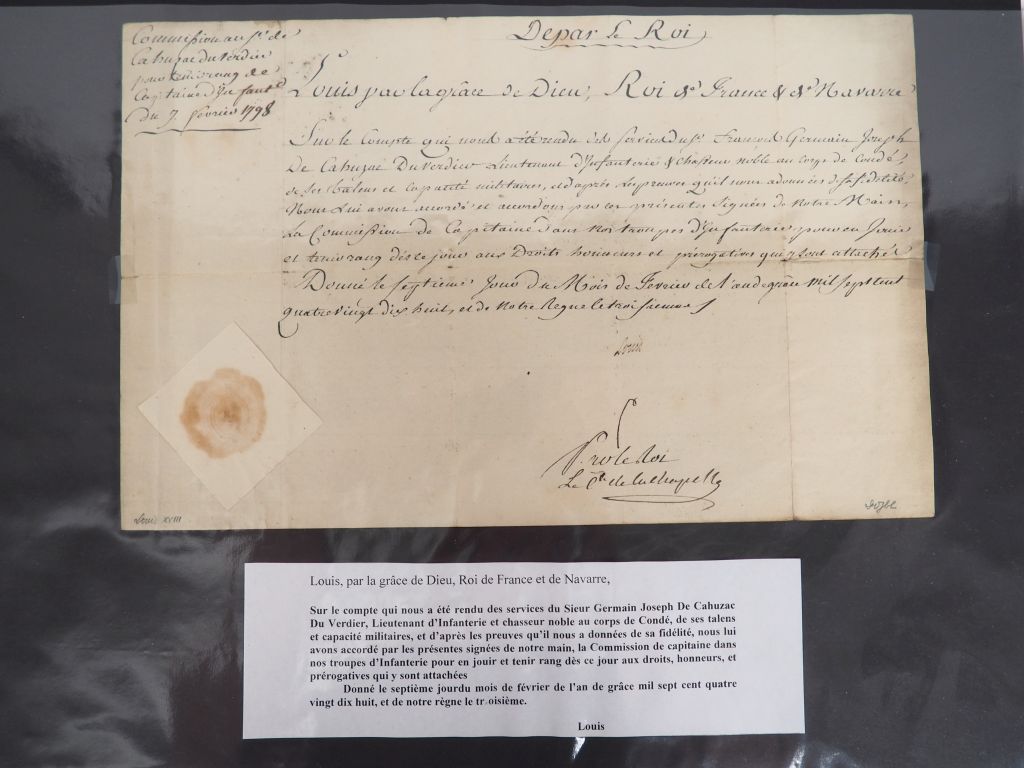 Commission au Sr. de
Cahuzac du Verdier
pour tenir rang de
Capitaine d'Infanterie
du 7. février 1798
De par le Roi
Louis par la grâce de Dieu, Roi de France & de Navarre
Sur le Compte qui nous a été rendu des services du Sr. François Germain Joseph
De Cahuzac Du Verdier Lieutenant d'Infanterie & Chasseur noble au corps de Condé,
de ses talens et capacité militaires, et d'après les preuves qu'il nous a données de sa fidélité,
Nous lui avons accordé et accordons par ces présentes signées de Notre Main,
La Commission de Capitaine dans nos troupes d'Infanterie pour en Jouir
et tenir rang dès ce jour aux Droits honneurs et prérogatives qui y sont attachés
Donné le septieme Jour du Mois de Février de l'an de grâce mil sept cent
quatre vingt dix huit, et de notre Regne le troisieme
Louis
Par le Roi
Le Cte de la Chapelle
Louis XVIII
Louis, par la grâce de Dieu, Roi de France et de Navarre,
Sur le compte qui nous a été rendu des services du Sieur Germain Joseph De Cahuzac
Du Verdier, Lieutenant d'Infanterie et chasseur noble au corps de Condé, de ses talens
et capacité militaires, et d'après les preuves qu'il nous a données de sa fidélité, nous lui
avons accordé par les présentes signées de notre main, la Commission de capitaine dans
nos troupes d'Infanterie pour en jouir et tenir rang dès ce jour aux droits, honneurs, et
prérogatives qui y sont attachées
Donné le septième jourdu mois de février de l'an de grâce mil sept cent quatre
vingt dix huit, et de notre règne le troisième.
Louis